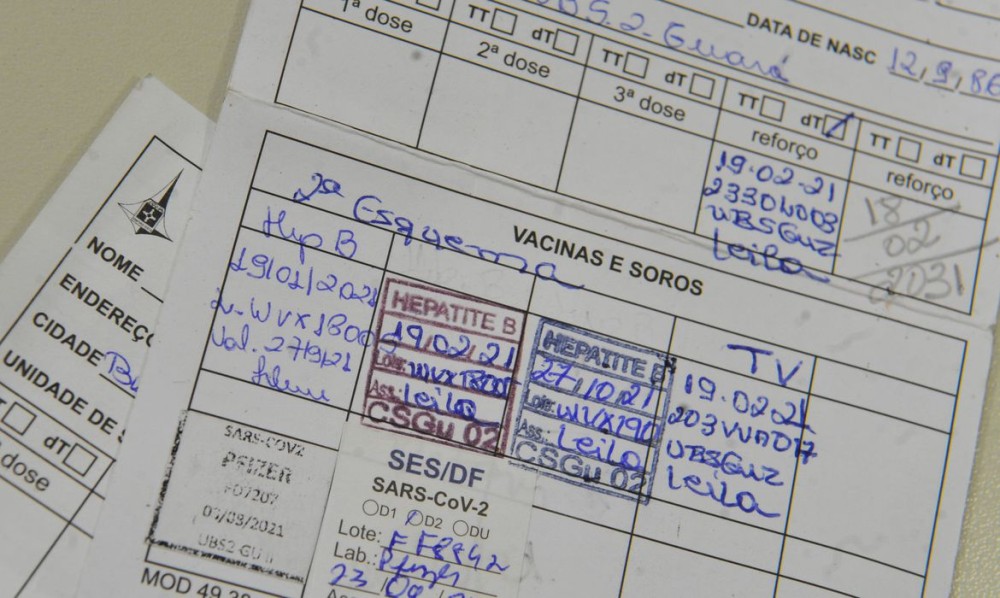 UBS.2-Guará
DATA DE NASC 12,9,86
1ª dose
TT dT
2ª dose
TT dT
3ª dose
TT dT
reforço
19.02.21
UBSGUZ
Leila
TT dT
reforço
18/
02
2031
2ª Esquema
VACINAS E SOROS
Hep B
19/01/2021
Val. 27/9/21
HEPATITE B
19,02,21
Lote:
Ass: Leila
CSGu 02
HEPATITE B
27,10,21
Lote: WVX190
Ass.: Leila
CSGu 02
TV
19.02.21
UBSGUZ
Leila
SARS-COV2
PFIZER
UBS2-GU
SES/DF
SARS-CoV-2
D1 D2 DU
Lote:
Lab.: Pfizer
23
MOD 49
NOME
ENDEREÇO
CIDADE
UNIDADE DE
TT dT
dose